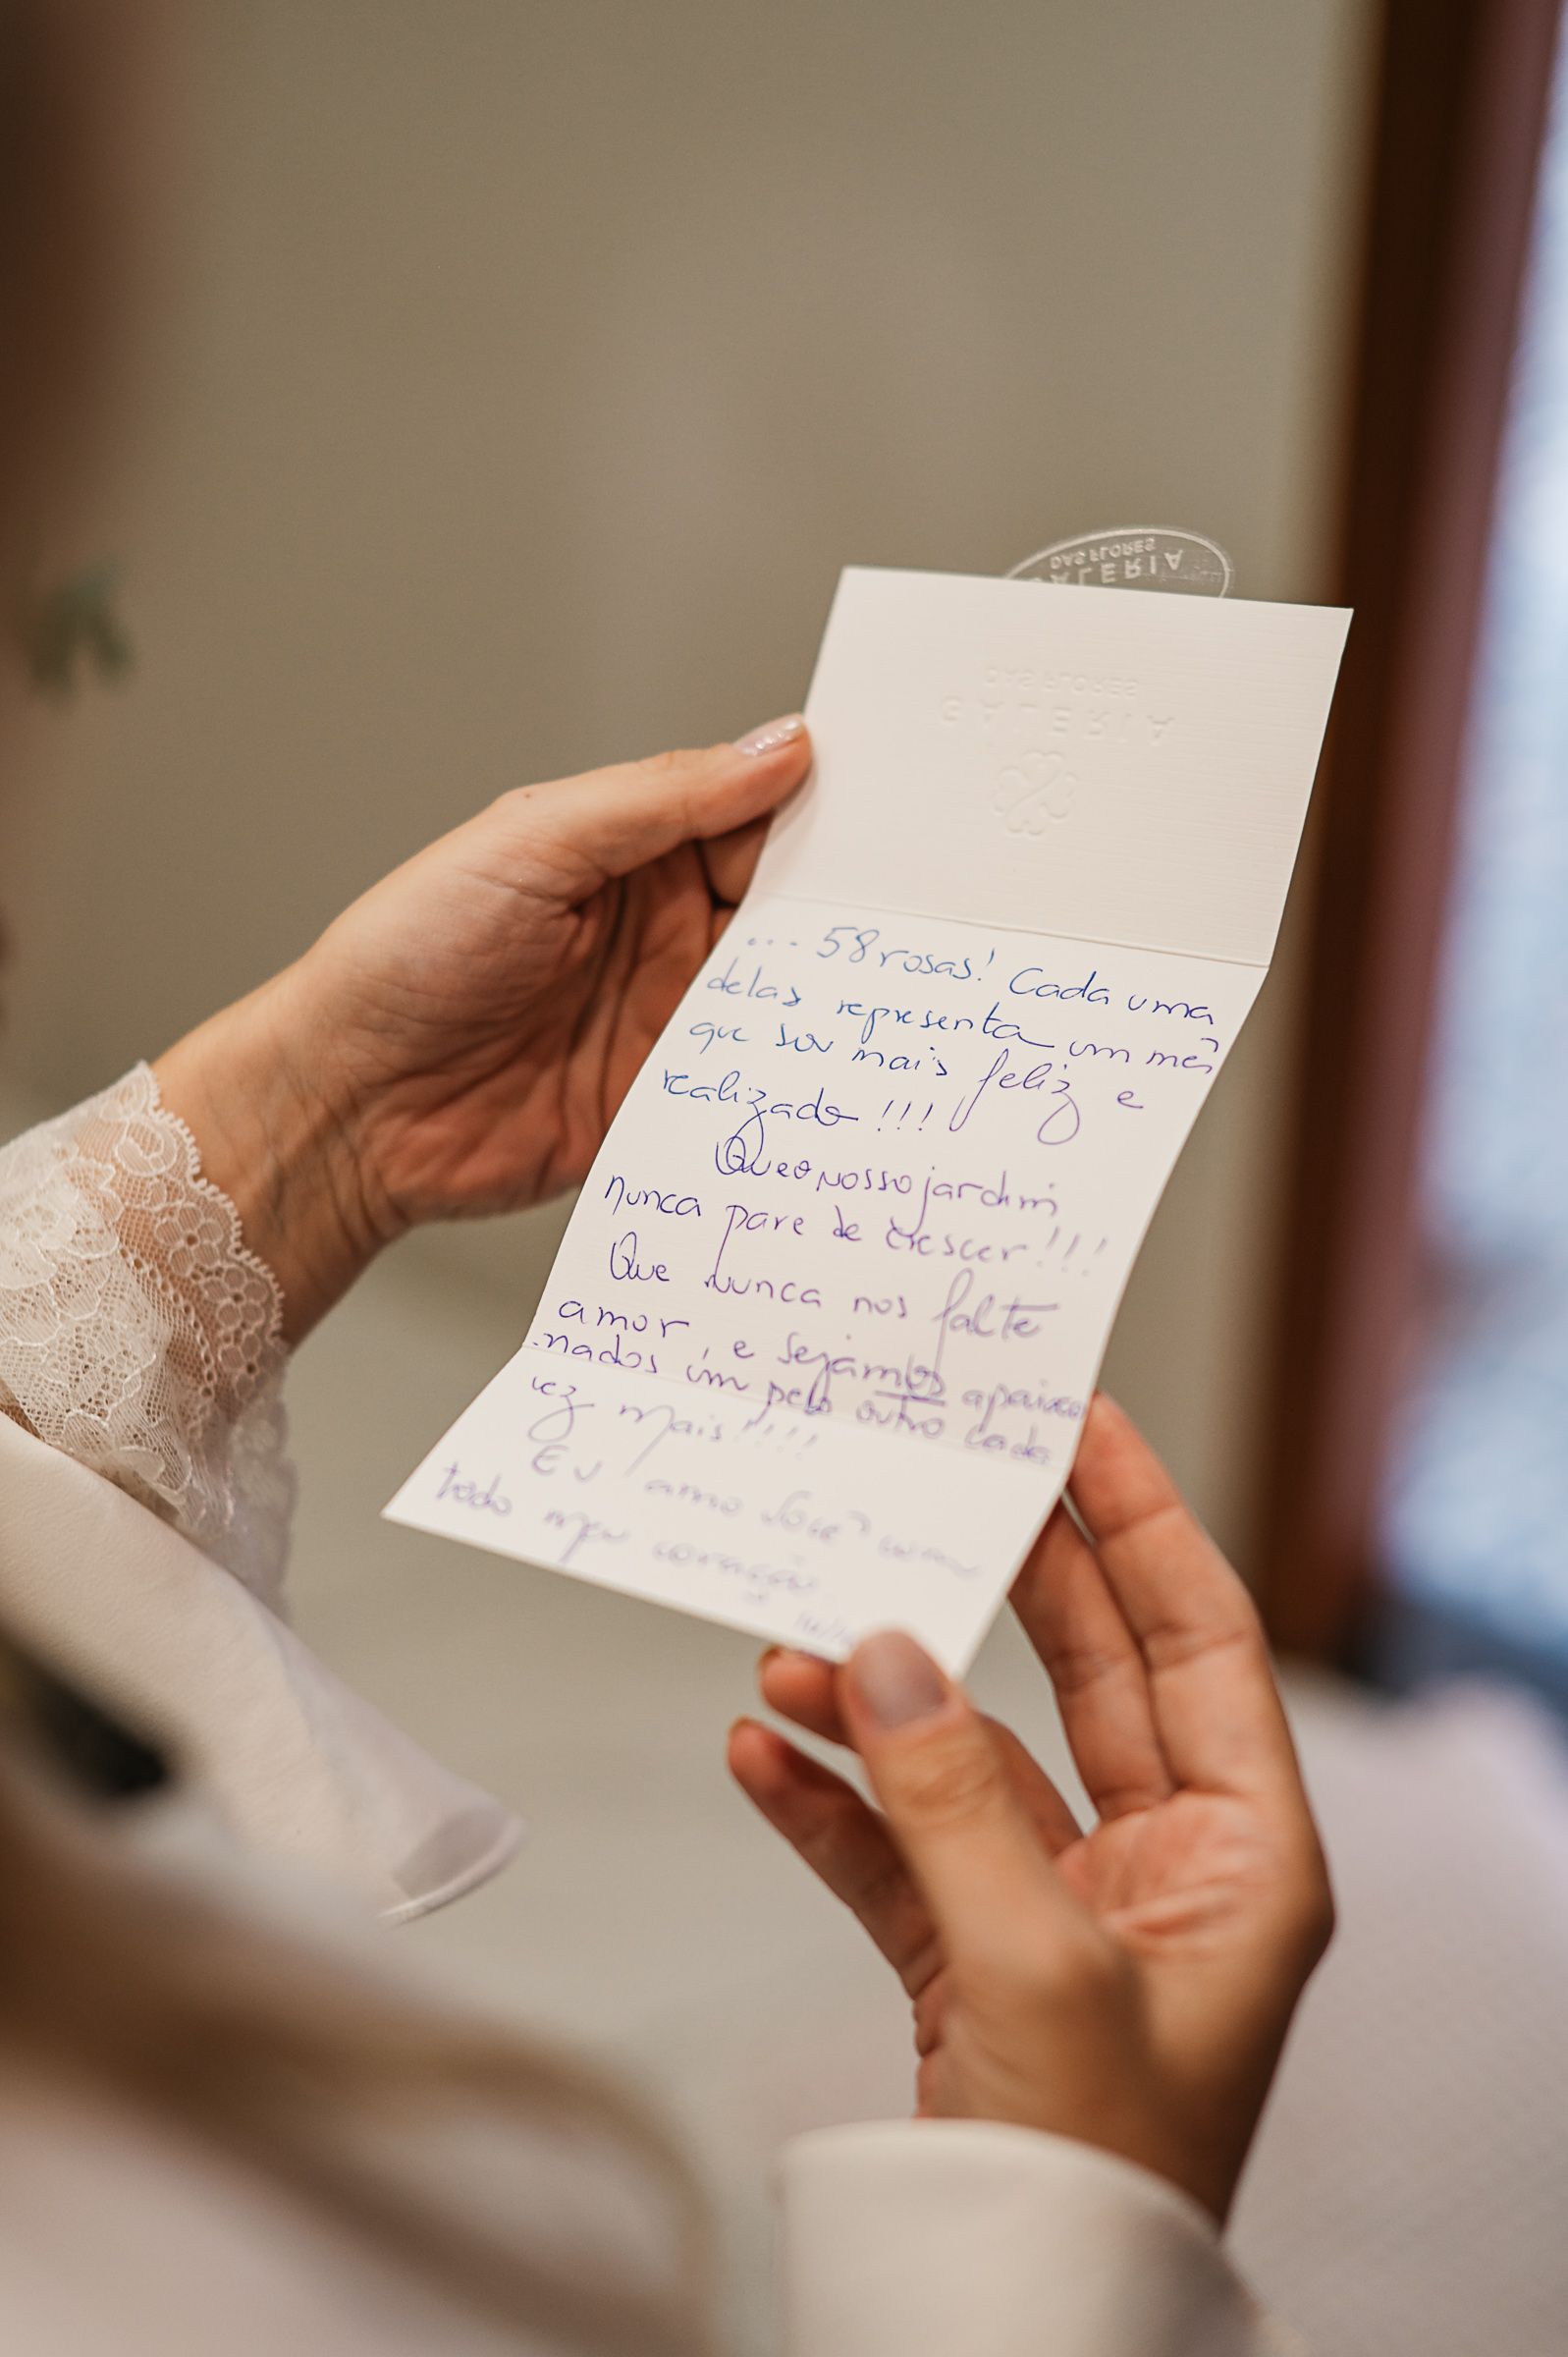 GALERIA
DAS FLORES
GALERIA
DAS FLORES
... 58 rosas! Cada uma
delas representa um mês
que sou mais feliz e
realizado!!!
Que o nosso jardim
nunca pare de crescer!!!
Que nunca nos falte
amor, e sejamos apaixo
nados um pelo outro cada
vez mais!!!!
Eu amo você com
todo meu coração